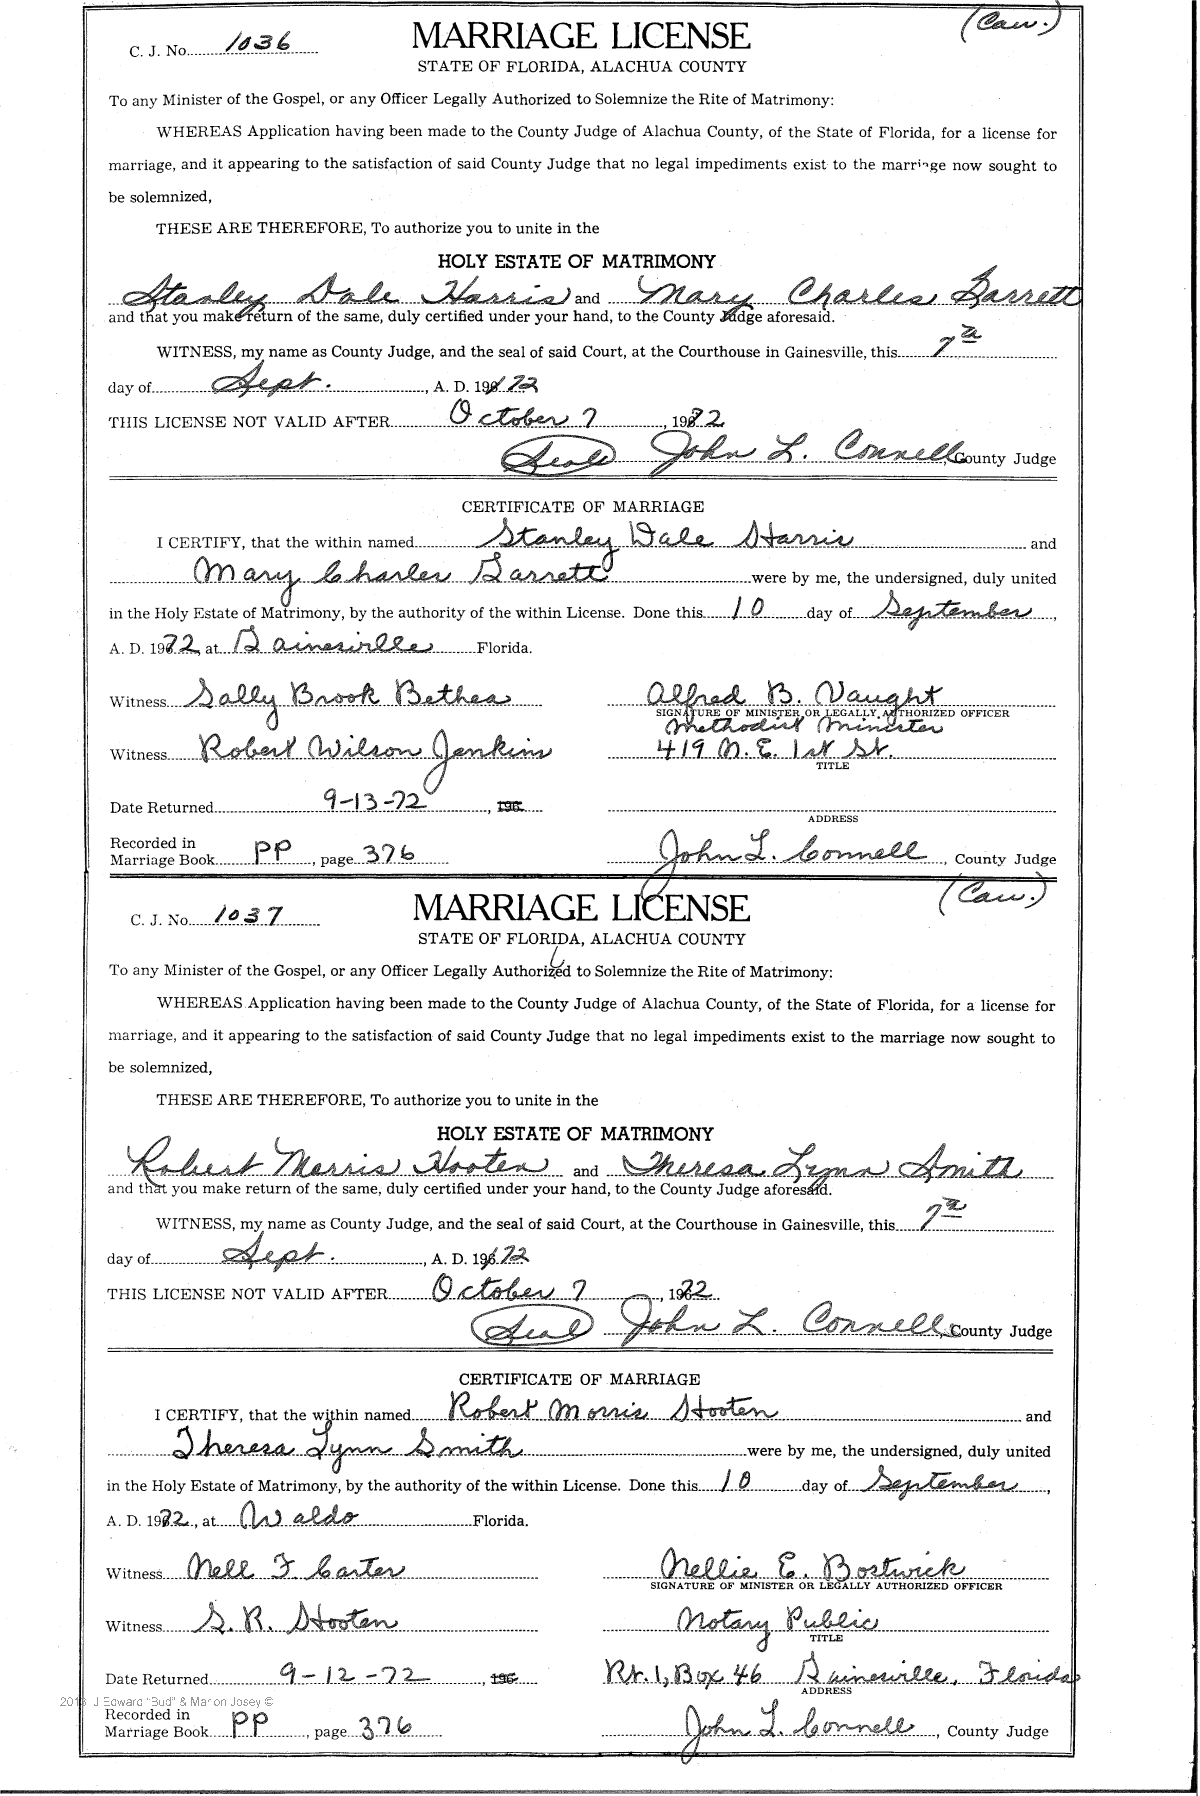 (Cau.)
C. J. No. 1036 MARRIAGE LICENSE
STATE OF FLORIDA, ALACHUA COUNTY
To any Minister of the Gospel, or any Officer Legally Authorized to Solemnize the Rite of Matrimony:
WHEREAS Application having been made to the County Judge of Alachua County, of the State of Florida, for a license for
marriage, and it appearing to the satisfaction of said County Judge that no legal impediments exist to the marriage now sought to
be solemnized,
THESE ARE THEREFORE, To authorize you to unite in the
HOLY ESTATE OF MATRIMONY
Stanley Dale Harris and Mary Charles Garrett
and that you make return of the same, duly certified under your hand, to the County Judge aforesaid.
WITNESS, my name as County Judge, and the seal of said Court, at the Courthouse in Gainesville, this 7th
day of Sept. , A. D. 1972
THIS LICENSE NOT VALID AFTER October 7 , 1972
(Seal) John L. Connell, County Judge
CERTIFICATE OF MARRIAGE
I CERTIFY, that the within named Stanley Dale Harris and
Mary Charles Garrett were by me, the undersigned, duly united
in the Holy Estate of Matrimony, by the authority of the within License. Done this 10 day of September,
A. D. 1972, at Gainesville Florida.
Witness Sally Brook Bethea Alfred B. Vaught
SIGNATURE OF MINISTER OR LEGALLY AUTHORIZED OFFICER
Methodist Minister
Witness Robert Wilson Jenkins 419 N.E. 1st St.
TITLE
Date Returned 9-13-72 , 196
ADDRESS
Recorded in
Marriage Book PP , page 376 John L. Connell, County Judge
(Cau.)
C. J. No. 1037 MARRIAGE LICENSE
STATE OF FLORIDA, ALACHUA COUNTY
To any Minister of the Gospel, or any Officer Legally Authorized to Solemnize the Rite of Matrimony:
WHEREAS Application having been made to the County Judge of Alachua County, of the State of Florida, for a license for
marriage, and it appearing to the satisfaction of said County Judge that no legal impediments exist to the marriage now sought to
be solemnized,
THESE ARE THEREFORE, To authorize you to unite in the
HOLY ESTATE OF MATRIMONY
Robert Morris Hooten and Theresa Lynn Smith
and that you make return of the same, duly certified under your hand, to the County Judge aforesaid.
WITNESS, my name as County Judge, and the seal of said Court, at the Courthouse in Gainesville, this 7th
day of Sept. , A. D. 1972
THIS LICENSE NOT VALID AFTER October 7 , 1972
(Seal) John L. Connell, County Judge
CERTIFICATE OF MARRIAGE
I CERTIFY, that the within named Robert Morris Hooten and
Theresa Lynn Smith were by me, the undersigned, duly united
in the Holy Estate of Matrimony, by the authority of the within License. Done this 10 day of September,
A. D. 1972, at Waldo Florida.
Witness Nell F Carter Nellie E. Bostwick
SIGNATURE OF MINISTER OR LEGALLY AUTHORIZED OFFICER
Witness G. R. Hooten Notary Public
TITLE
Date Returned 9-12-72 , 196 Rt. 1, Box 46 Gainesville, Florida
ADDRESS
J Edward "Bud" & Marion Josey ©
Recorded in
Marriage Book PP , page 376 John L. Connell, County Judge